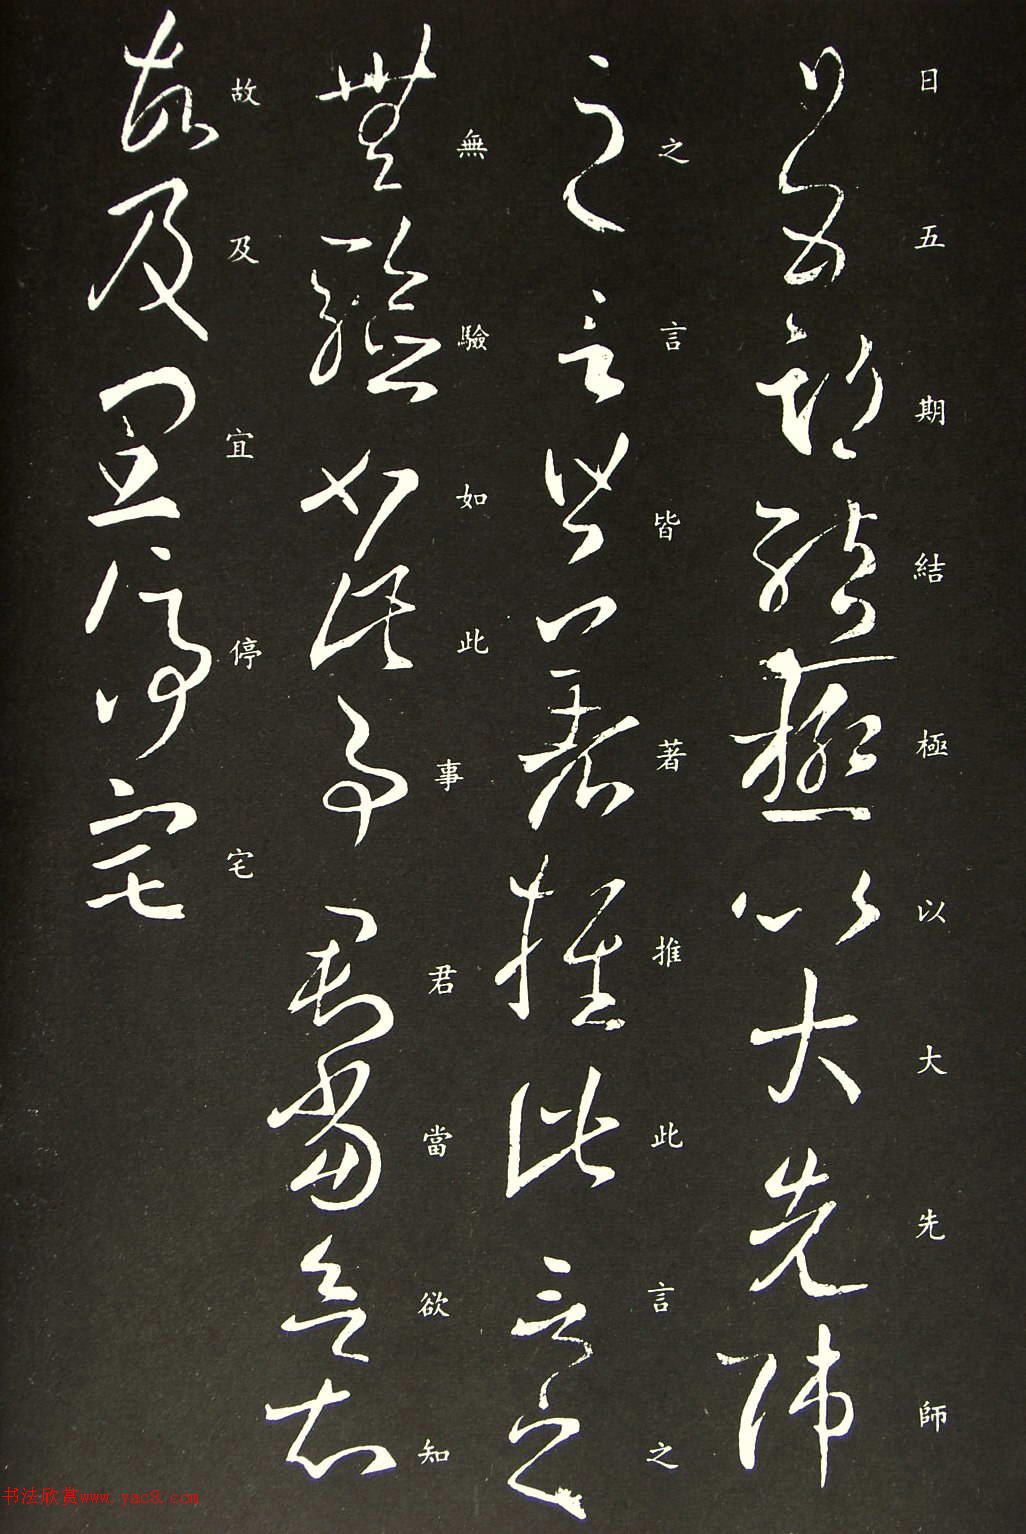 日五期結極以大先師
之言皆著推此言之
無驗如此事君當欲知
故及宜停宅
书法欣赏www.yac8.com